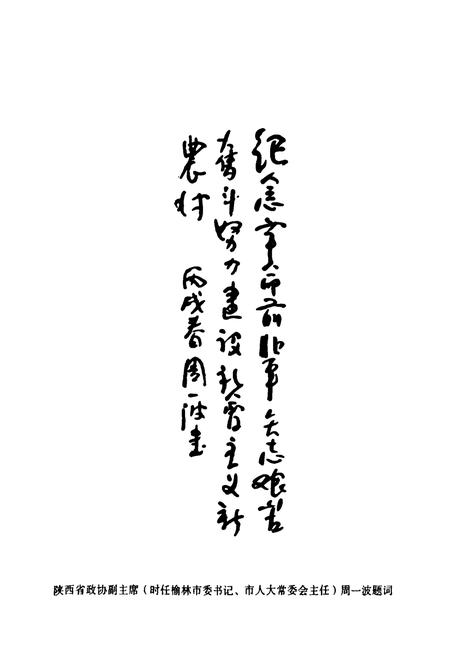 纪念前军矢志艰苦
奮斗努力建设社會主义新
農村 丙戌春周一波书
陕西省政协副主席（时任榆林市委书记、市人大常委会主任）周一波题词